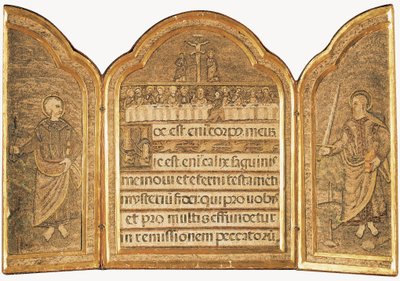 Hoc est eni corpꝰ meuȝ
Hic est eni calix sāguinis
mei novi et eterni testamēti
mysteriū fidei qui pro vobis
et pro multis effundetur
in remissionem peccatorū